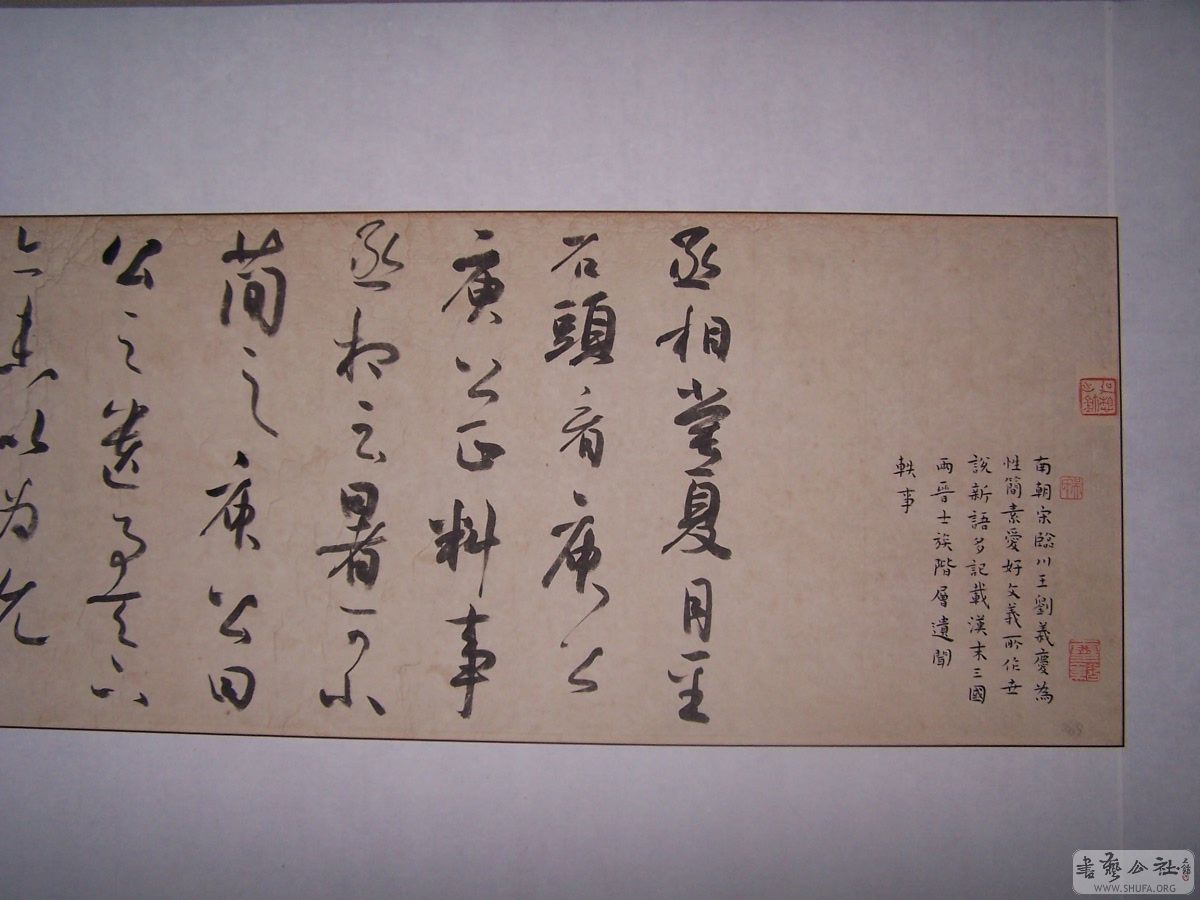 南朝宋臨川王劉義慶為
性簡素愛好文義所作世
說新語多記載漢末三國
兩晉士族階層遺聞
軼事
丞相嘗夏月至
石頭看庾公
庾公正料事
丞相云暑可小
簡之庾公曰
公之遺事天下
亦未以為允
書藝公社
WWW.SHUFA.ORG